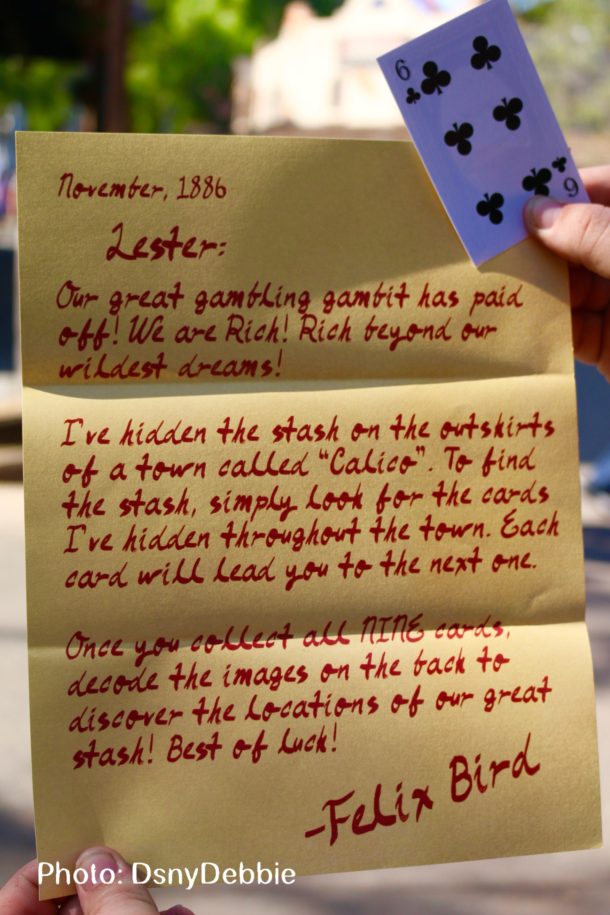 6
9
November, 1886
Lester:
Our great gambling gambit has paid
off! We are Rich! Rich beyond our
wildest dreams!
I've hidden the stash on the outskirts
of a town called "Calico". To find
the stash, simply look for the cards
I've hidden throughout the town. Each
card will lead you to the next one.
Once you collect all NINE cards,
decode the images on the back to
discover the locations of our great
stash! Best of luck!
-Felix Bird
Photo: DsnyDebbie